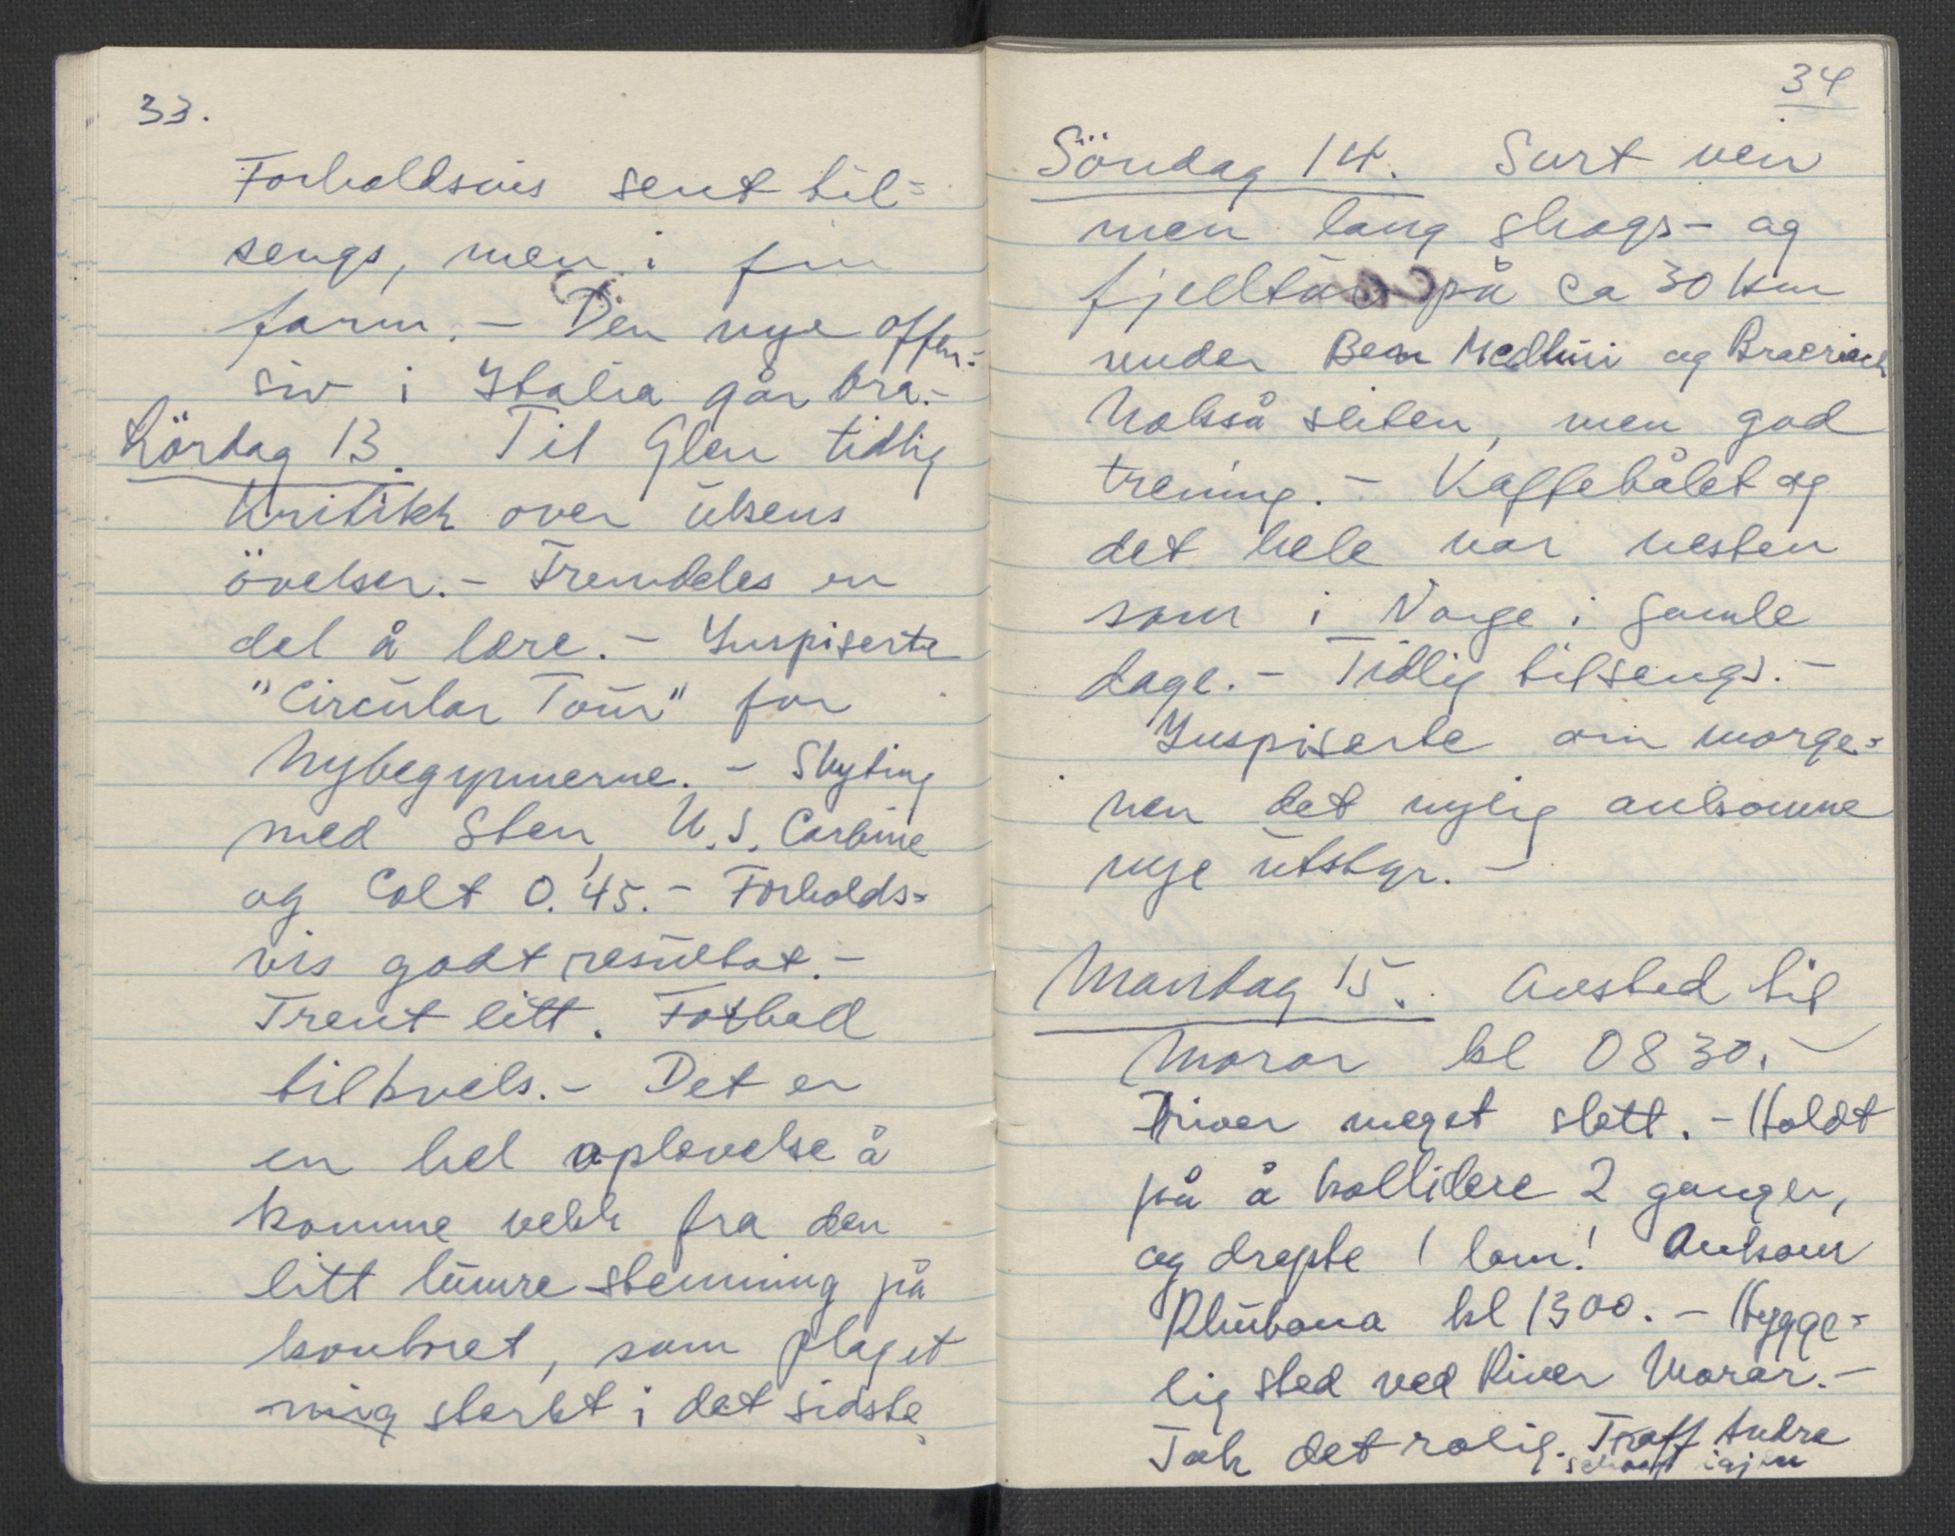 33.
Forholdsvis sent til=
sengs, men i fin
form. – Den nye offen-
siv i Italia går bra.–
Lördag 13. Til Glen tidlig
Kritikk over ukens
övelser. – Fremdeles en
del å lære. – Inspiserte
"Circular Tour" for
Nybegynnerne. – Skyting
med Sten, U.S. Carbine
og Colt 0.45. – Forholds=
vis godt resultat. –
Trent litt. Fotball
tilkvels. – Det er
en hel oplevelse å
komme vekk fra den
litt lumre stemning på
kontoret, som plaget
mig sterkt i det sidste.
34
Söndag 14. Surt veir
men lang skogs- og
fjelltur på ca 30 km
under Ben Medhui og Braeriach
Nokså sliten, men god
trening. – Kaffebålet og
det hele var nesten
som i Norge i gamle
dage. – Tidlig tilsengs. –
Inspiserte om morge=
nen det nylig ankomne
nye utstyr. –
Mandag 15. Avsted til
Morar kl 0830. –
Driver meget slett. – Holdt
på å kollidere 2 ganger,
og drepte 1 lam! Ankom
Rhubana kl 1300. – Hygge=
lig sted ved River Morar. –
Tok det rolig. Traff Andre
igjen